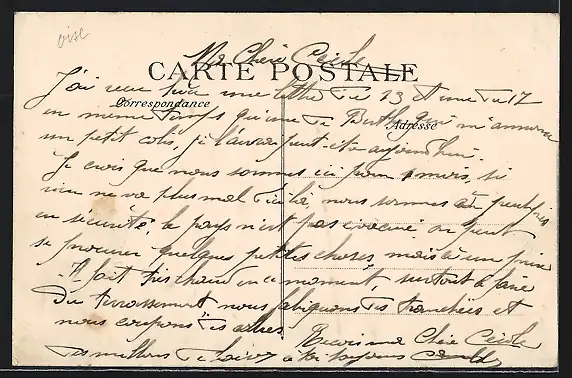 oise
Ma Chérie Cécile
CARTE POSTALE
Correspondance
Adresse
J'ai reçu une lettre du 13 et une du 17
en même temps qu'une de Berthe qui m'annonce
un petit colis, je l'aurai peut-être aujourd'hui.
Je crois que nous sommes ici pour 1 mois, si
rien ne va plus mal d'ici là, nous sommes à peu près
en sécurité le pays n'est pas évacué on peut
se procurer quelques petites choses, mais à un prix
Il fait très chaud en ce moment, surtout à faire
du terrassement nous des tranchées et
nous coupons des arbres. Reçois ma Chérie Cécile
des millions de baisers à toi toujours